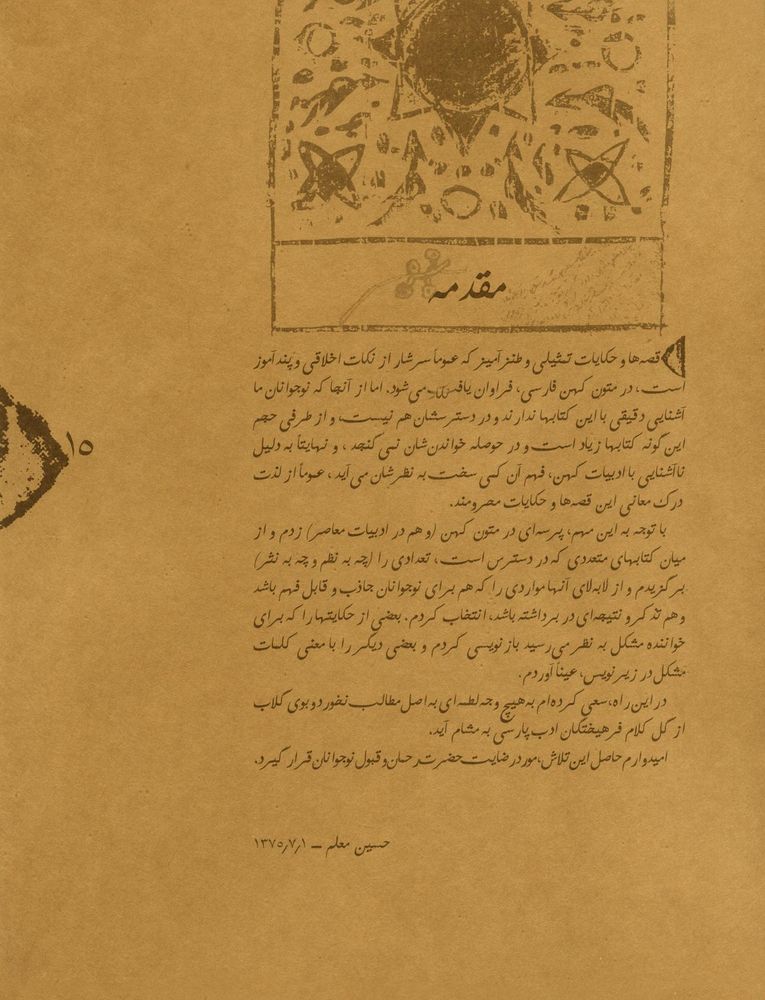 مقدمه
قصه‌ها و حکایات تمثیلی و طنزآمیز که عموماً سرشار از نکات اخلاقی و پندآموز
است، در متون کهن فارسی، فراوان یافت می‌شود. اما از آنجا که نوجوانان ما
آشنایی دقیقی با این کتابها ندارند و در دسترسشان هم نیست، و از طرفی حجم
این گونه کتابها زیاد است و در حوصله خواندن‌شان نمی‌گنجد، و نهایتاً به دلیل
ناآشنایی با ادبیات کهن، فهم آن کمی سخت به نظرشان می‌آید، عموماً از لذت
درک معانی این قصه‌ها و حکایات محرومند.
با توجه به این مهم، پرسه‌ای در متون کهن (و هم در ادبیات معاصر) زدم و از
میان کتابهای متعددی که در دسترس است، تعدادی را (چه به نظم و چه به نثر)
برگزیدم و از لابه‌لای آنها مواردی را که هم برای نوجوانان جاذب و قابل فهم باشد
و هم تذکر و نتیجه‌ای در بر داشته باشد، انتخاب کردم. بعضی از حکایتها را که برای
خواننده مشکل به نظر می‌رسید بازنویسی کردم و بعضی دیگر را با معنی کلمات
مشکل در زیرنویس، عیناً آوردم.
در این راه، سعی کرده‌ام به هیچ وجه لطمه‌ای به اصل مطالب نخورد و بوی گلاب
از گل کلام فرهیختگان ادب پارسی به مشام آید.
امیدوارم حاصل این تلاش، مورد رضایت حضرت رحمان و قبول نوجوانان قرار گیرد.
حسین معلم ــ ۱۳۷۵/۷/۱
۱۵